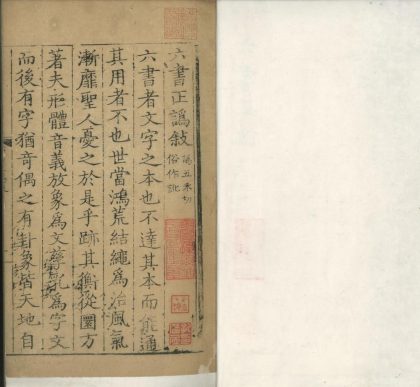 六書正譌敍
五禾切
俗作訛
六書者文字之本也不達其本而能通
其用者不也世當鴻荒結繩爲治風氣
漸靡聖人憂之於是乎跡其衡從圜方
著夫形體音義放象爲文孳乳爲字文
而後有字猶奇偶之有卦象皆天地自